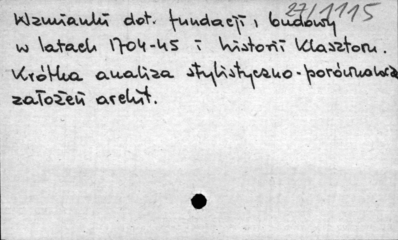 27/1115
Wzmianki dot. fundacji, budowy
w latach 1704-45 i historii klasztoru.
Krótka analiza stylistyczno-porównawcza
założeń archit.